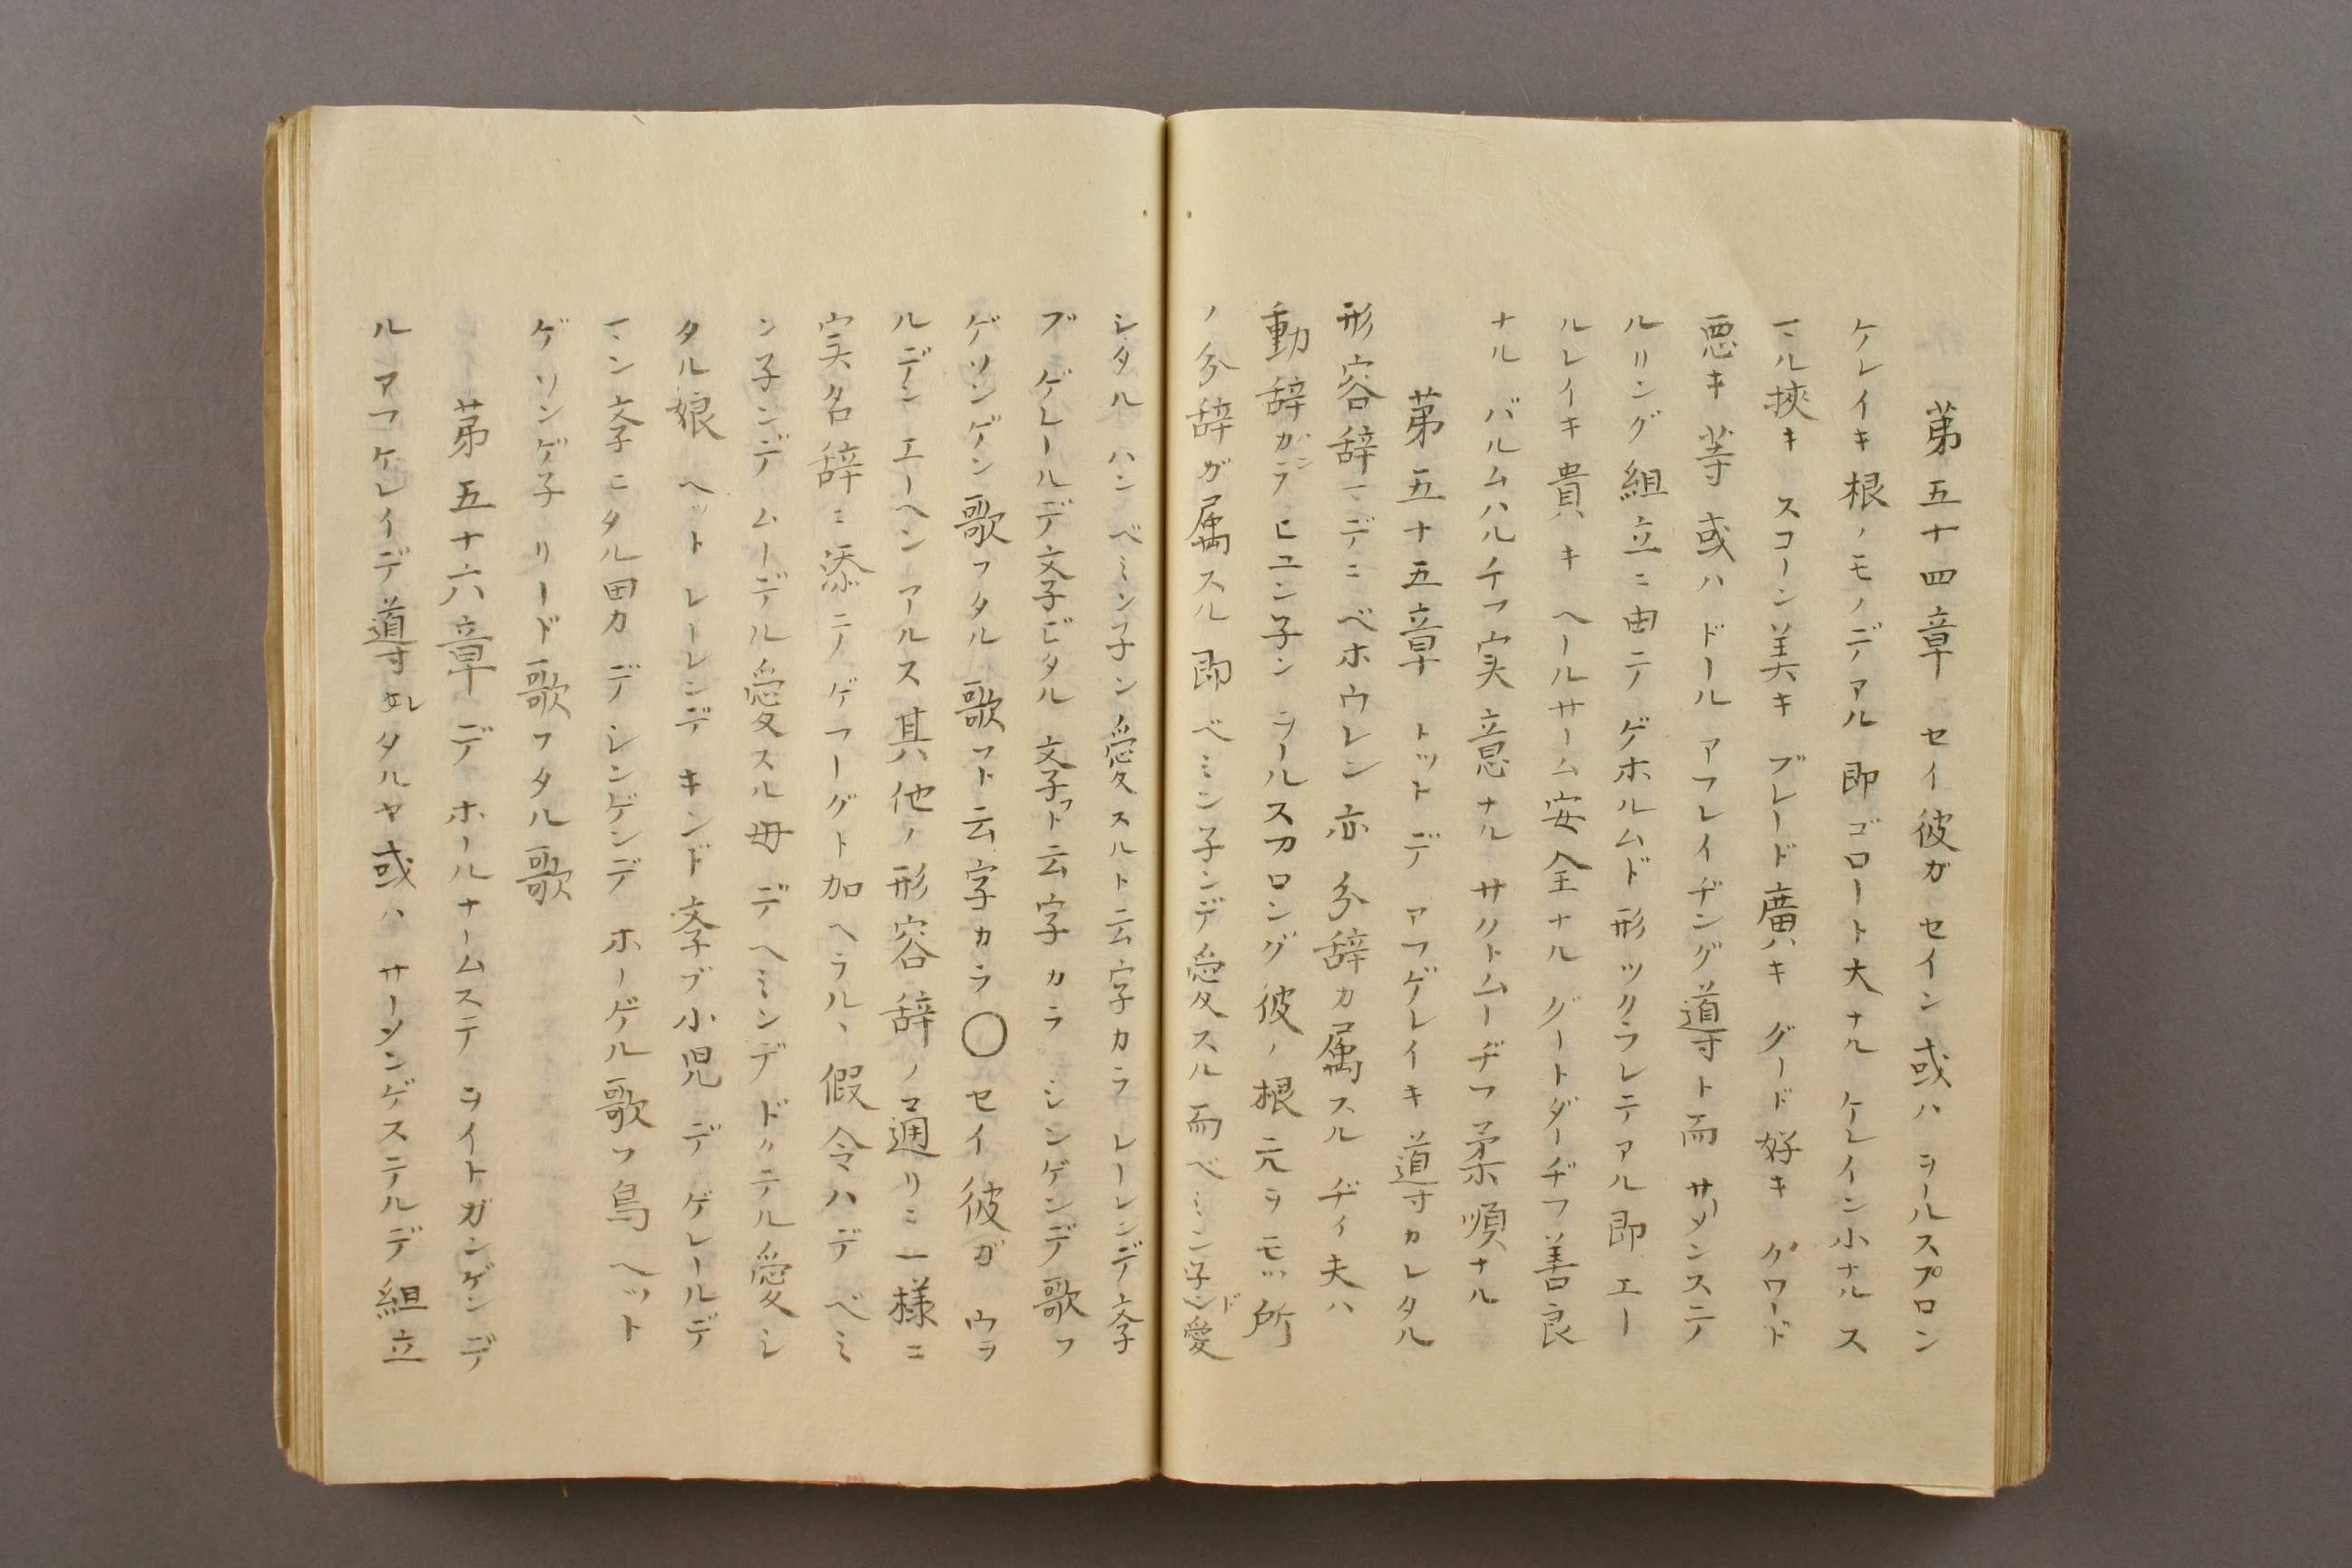 第五十四章 セイ彼ガ セイン或ハ ヲールスプロン
ケレイキ根ノモノデアル 即ゴロート大ナル ケレイン小ナル ス
マル挾キ スコーン美キ ブレード廣キ グード好キ クワード
悪キ 等或ハ ドール アフレイヂング道寸ト而 サメンステ
ルリング組立ニ由テ ゲホルムド形ツクラレテアル即 エー
ルレイキ貴キ ヘールサーム安全ナル グートダーヂフ善良
ナル バルムハルチフ実意ナル サクトムーヂフ柔順ナル
第五十五章 トット デ アフゲレイキ道寸カレタル
形容辞マデニ ベホウレン亦分辞カ属スル ヂイ夫ハ
動辞カラ ヒユン子ン ヲールスフロング彼ノ根元ヲモツ所
ノ分辞ガ属スル即 ベミン子ンデ愛スル而 ベミン子ンド愛
シタル ハン ベミン子ン愛スルト云字カラ レーレンデ斈
ブ ゲレールデ斈ビタル 斈フト云字カラ シンゲンデ歌フ
ゲソンゲン歌フタル 歌フト云字カラ〇セイ彼ガ ウヲ
ルデン エーヘン アールス其他ノ形容辞ノ通リニ一様ニ
実名辞ニ添ニノ ゲフーグト加ヘラル、 假令ハデ ベミ
ン子ンデ ムーデル愛スル母 デ ヘミンデ ドクテル愛シ
タル娘 ヘット レーレンデ キンド斈ブ小児 デ ゲレールデ
マン斈ニタル男カ デ シンゲンデ ホーゲル歌フ鳥 ヘット
ゲソンゲ子 リード歌フタル歌
第五十六章 デ ホールナームステ ヲイトガンゲン デ
ル アフケレイデ道寸カレタルヤ或ハ サーメンゲステルデ組立